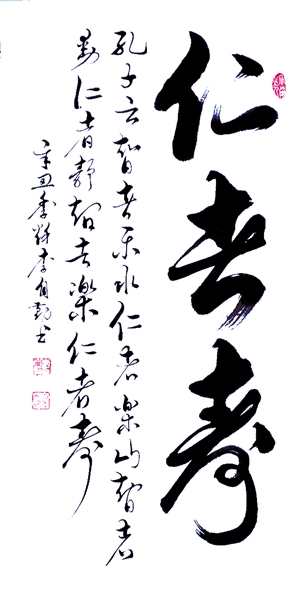 仁者寿
孔子云智者乐水仁者樂山智者
動仁者靜智者樂仁者寿
辛丑季秋李自勤书